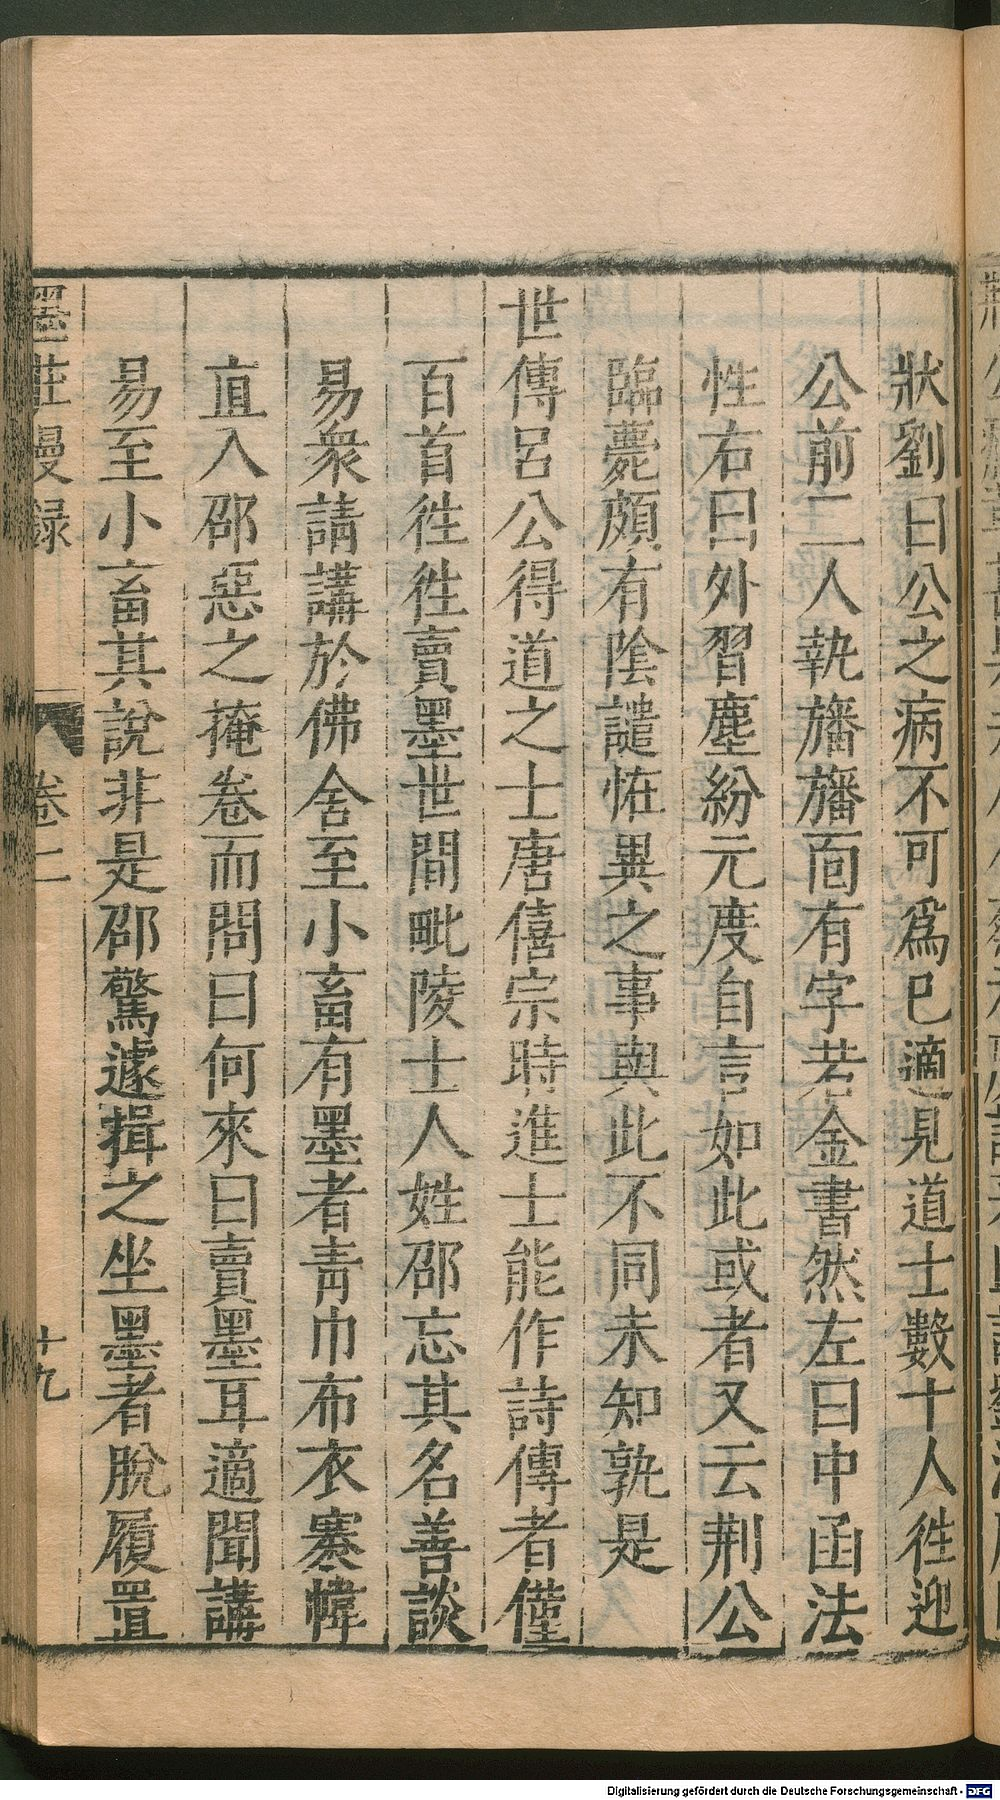 狀劉曰公之病不可爲已適見道士數十人徃迎
公前二人執旛旛面有字若金書然左曰中函法
性右曰外習塵紛元度自言如此或者又云荆公
臨薨頗有陰譴恠異之事與此不同未知孰是
世傳呂公得道之士唐僖宗時進士能作詩傳者僅
百首徃徃賣墨世間毗陵士人姓邵忘其名善談
易衆請講於佛舍至小畜有墨者青巾布衣褰幃
直入邵惡之掩卷而問曰何來曰賣墨耳適聞講
易至小畜其說非是邵驚遽揖之坐墨者脫履置
墨莊漫録
卷二
十九
Digitalisierung gefördert durch die Deutsche Forschungsgemeinschaft - DFG